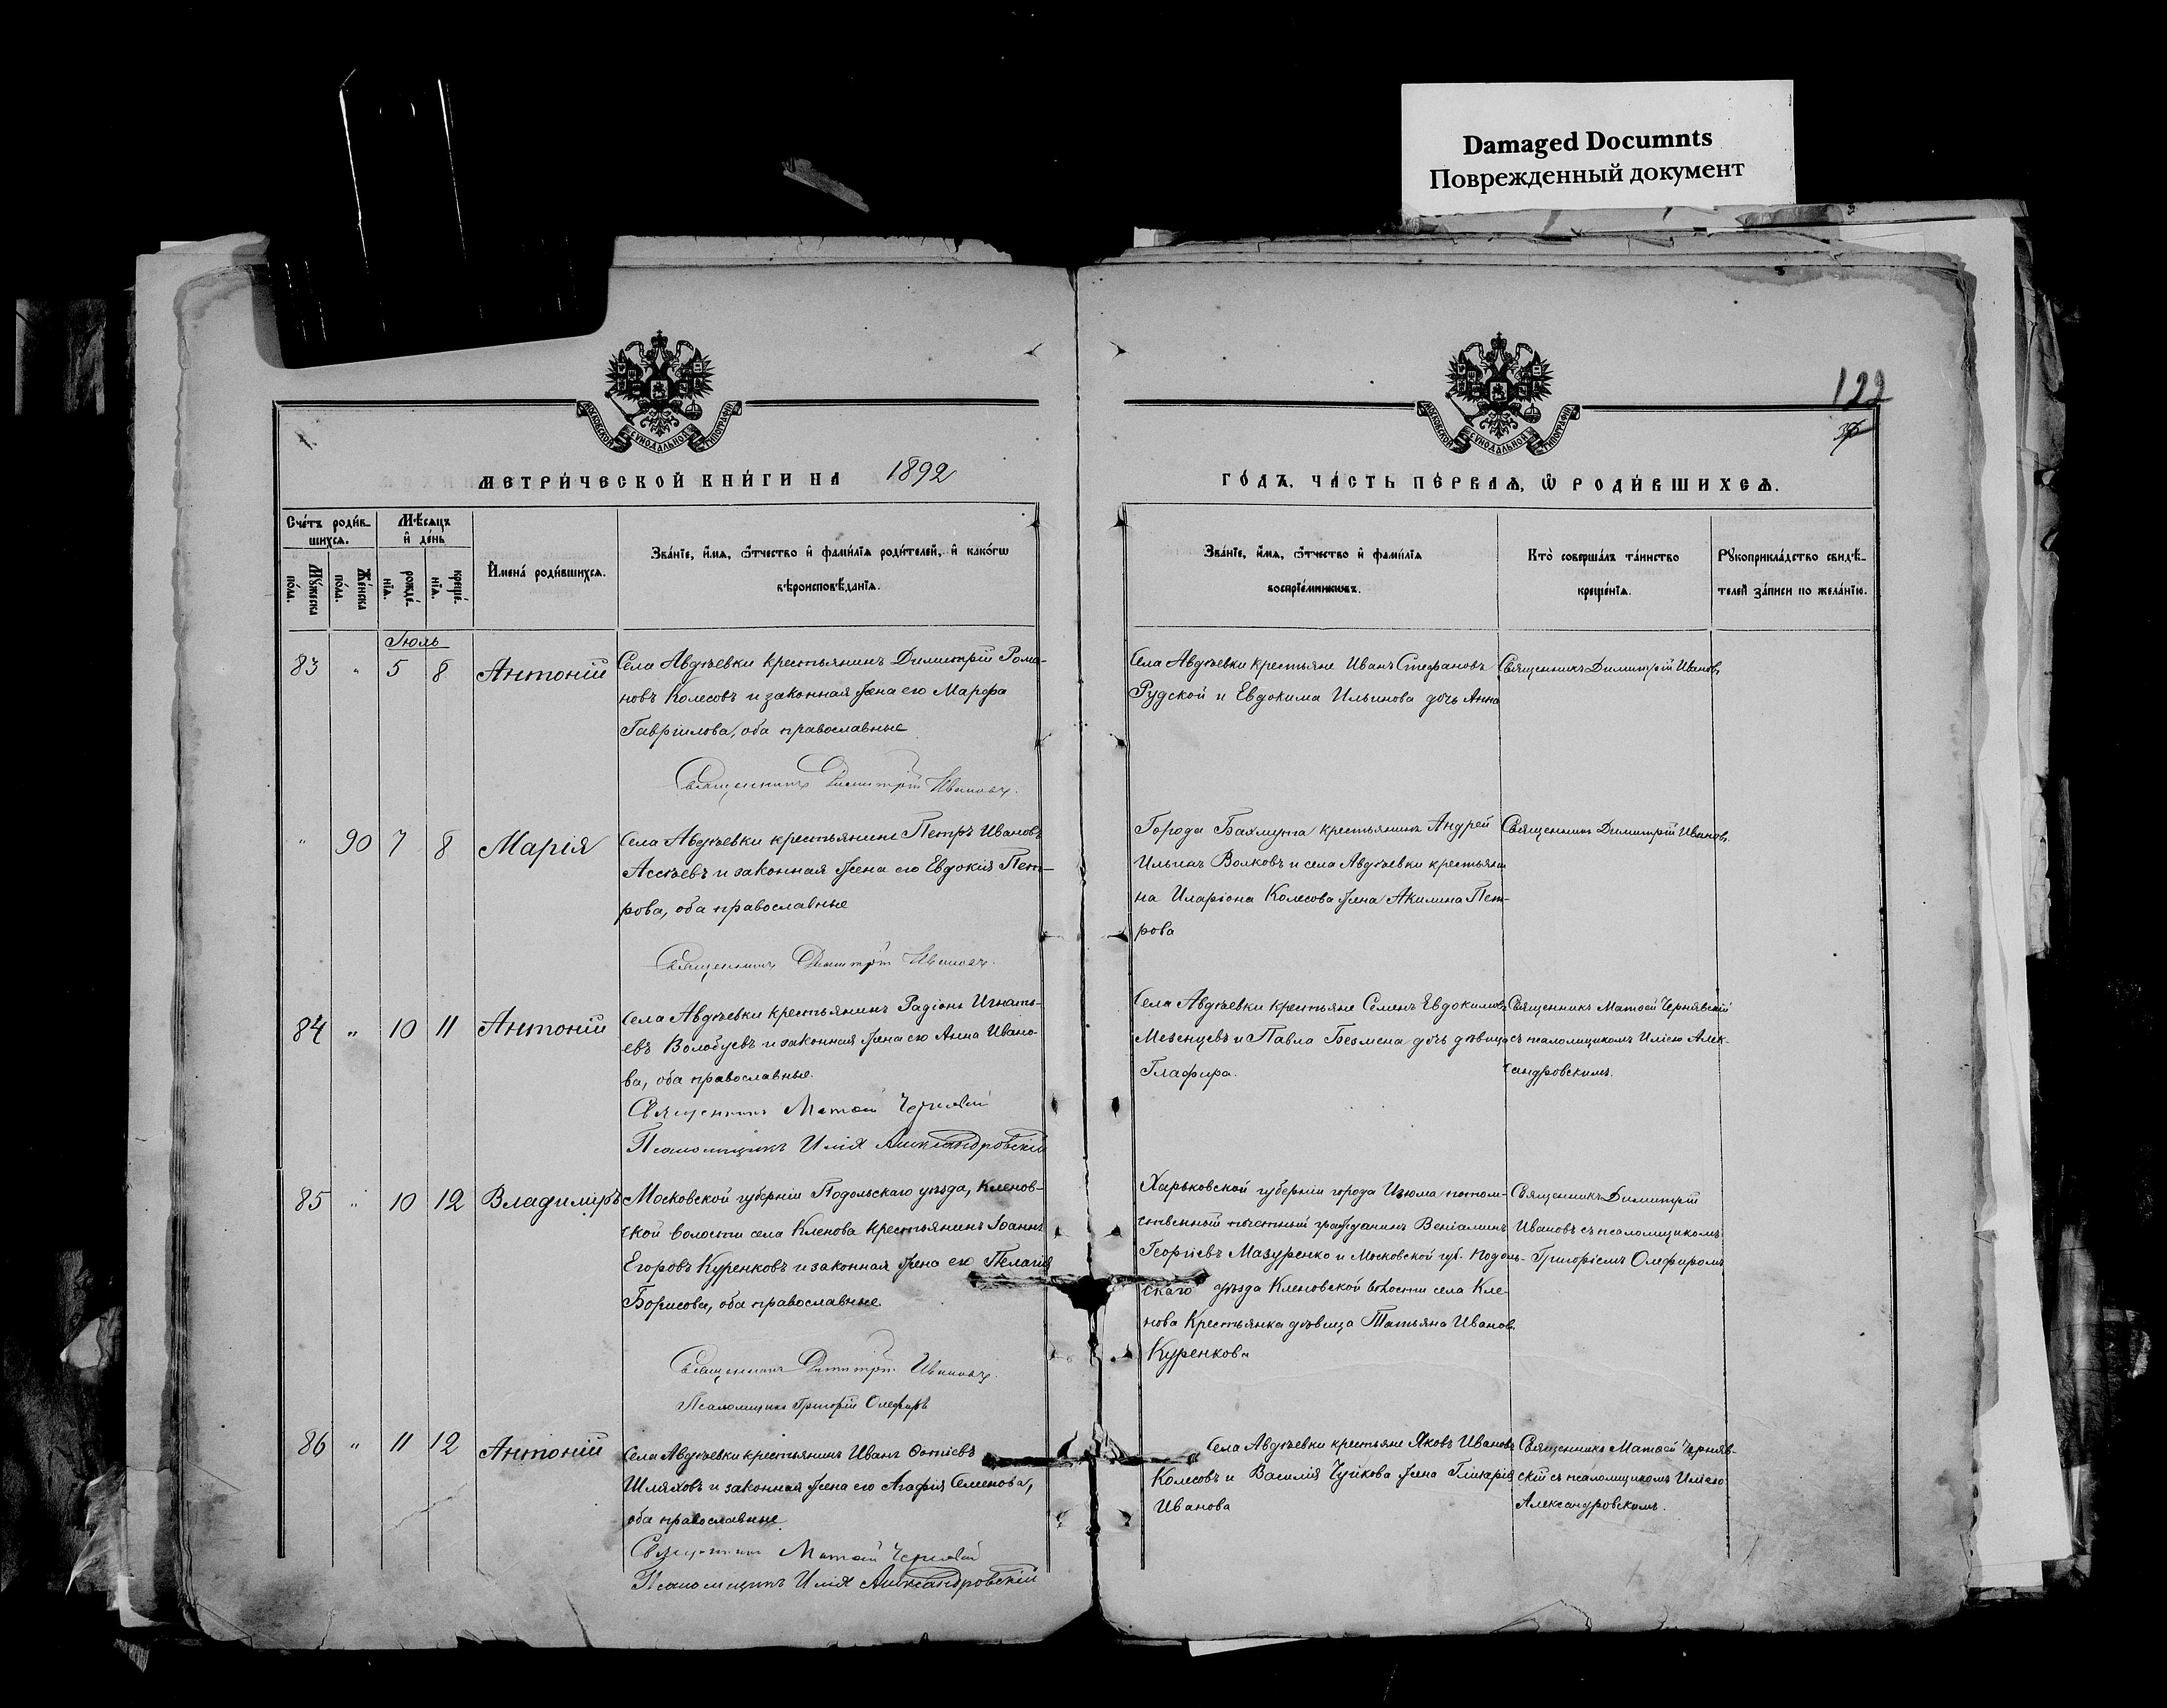 Damaged Documnts
Поврежденный документ
122
МОСКОВСКОЙ СѴНОДАЛЬНОЙ ТИПОГРАФІИ
МОСКОВСКОЙ СѴНОДАЛЬНОЙ ТИПОГРАФІИ
МЕТРИ́ЧЕСКОЙ КНИ́ГИ НА 1892
ГО́ДЪ, ЧА́СТЬ ПЕ́РВАЯ, Ѡ РОДИ́ВШИХСЯ.
Сче́тъ роди́в-
шихся.
Мѣ́сяцъ
и де́нь
Му́жеска
по́ла.
Же́нска
по́ла.
рожде́-
нїя.
креще́-
нїя.
Имена́ роди́вшихся.
Зва́нїе, и́мя, ѻ́тчество и фами́лїя роди́телей, и како́гѡ
вѣроисповѣ́данїя.
Зва́нїе, и́мя, ѻ́тчество и фами́лїя
воспрїе́мниковъ.
Кто̀ соверша́лъ та́инство
креще́нїя.
Рꙋкоприкла́дство свидѣ́-
телей за́писи по жела́нїю.
Іюль
83 " 5 8 Антоній
Села Авдѣевки крестьянинъ Димитрій Рома-
новъ Колесовъ и законная жена его Марфа
Гавріилова, оба православные
Священникъ Димитрій Ивановъ.
Села Авдѣевки крестьяне Иванъ Стефановъ
Рудской и Евдокима Ильинова дочь Анна
Священникъ Димитрій Ивановъ
" 90 7 8 Марія
Села Авдѣевки крестьянинъ Петръ Ивановъ
Ассѣевъ и законная жена его Евдокія Пет-
рова, оба православные
Священникъ Димитрій Ивановъ.
Города Бахмута крестьянинъ Андрей
Ильинъ Волковъ и села Авдѣевки крестьяни
на Иларіона Колесова жена Акилина Пет-
рова
Священникъ Димитрій Ивановъ.
84 " 10 11 Антоній
Села Авдѣевки крестьянинъ Радіонъ Игнать-
евъ Волобуевъ и законная жена его Анна Ивано-
ва, оба православные.
Священникъ Матѳей Чернявскій
Псаломщикъ Илія Александровскій
Села Авдѣевки крестьяне Семенъ Евдокимовъ
Мезенцевъ и Павла Безмена дочь дѣвица
Глафира.
Священникъ Матѳей Чернявскій
съ псаломщикомъ Иліею Алек-
сандровскимъ.
85 " 10 12 Владиміръ
Московской губерніи Подольскаго уѣзда, Кленов-
ской волости села Кленова крестьянинъ Іоаннъ
Егоровъ Куренковъ и законная жена его Пелагія
Борисова, оба православные.
Священникъ Димитрій Ивановъ.
Псаломщикъ Григорій Олефиръ
Харьковской губерніи города Изюма потом-
ственный почетный гражданинъ Веніаминъ
Георгіевъ Мазуренко и Московской губ. Подоль-
скаго уѣзда Кленовской волости села Кле-
нова Крестьянка дѣвица Татьяна Иванов.
Куренкова
Священникъ Димитрій
Ивановъ съ псаломщикомъ
Григоріемъ Олефиромъ
86 " 11 12 Антоній
Села Авдѣевки крестьянинъ Иванъ Фотіевъ
Шляховъ и законная жена его Агафія Семенова,
оба православные
Священникъ Матѳей Чернявскій
Псаломщикъ Илія Александровскій
Села Авдѣевки крестьяне Яковъ Ивановъ
Колесовъ и Василія Чуйкова жена Гликерія
Иванова
Священникъ Матѳей Черняв-
скій съ псаломщикомъ Иліею
Александровскимъ.